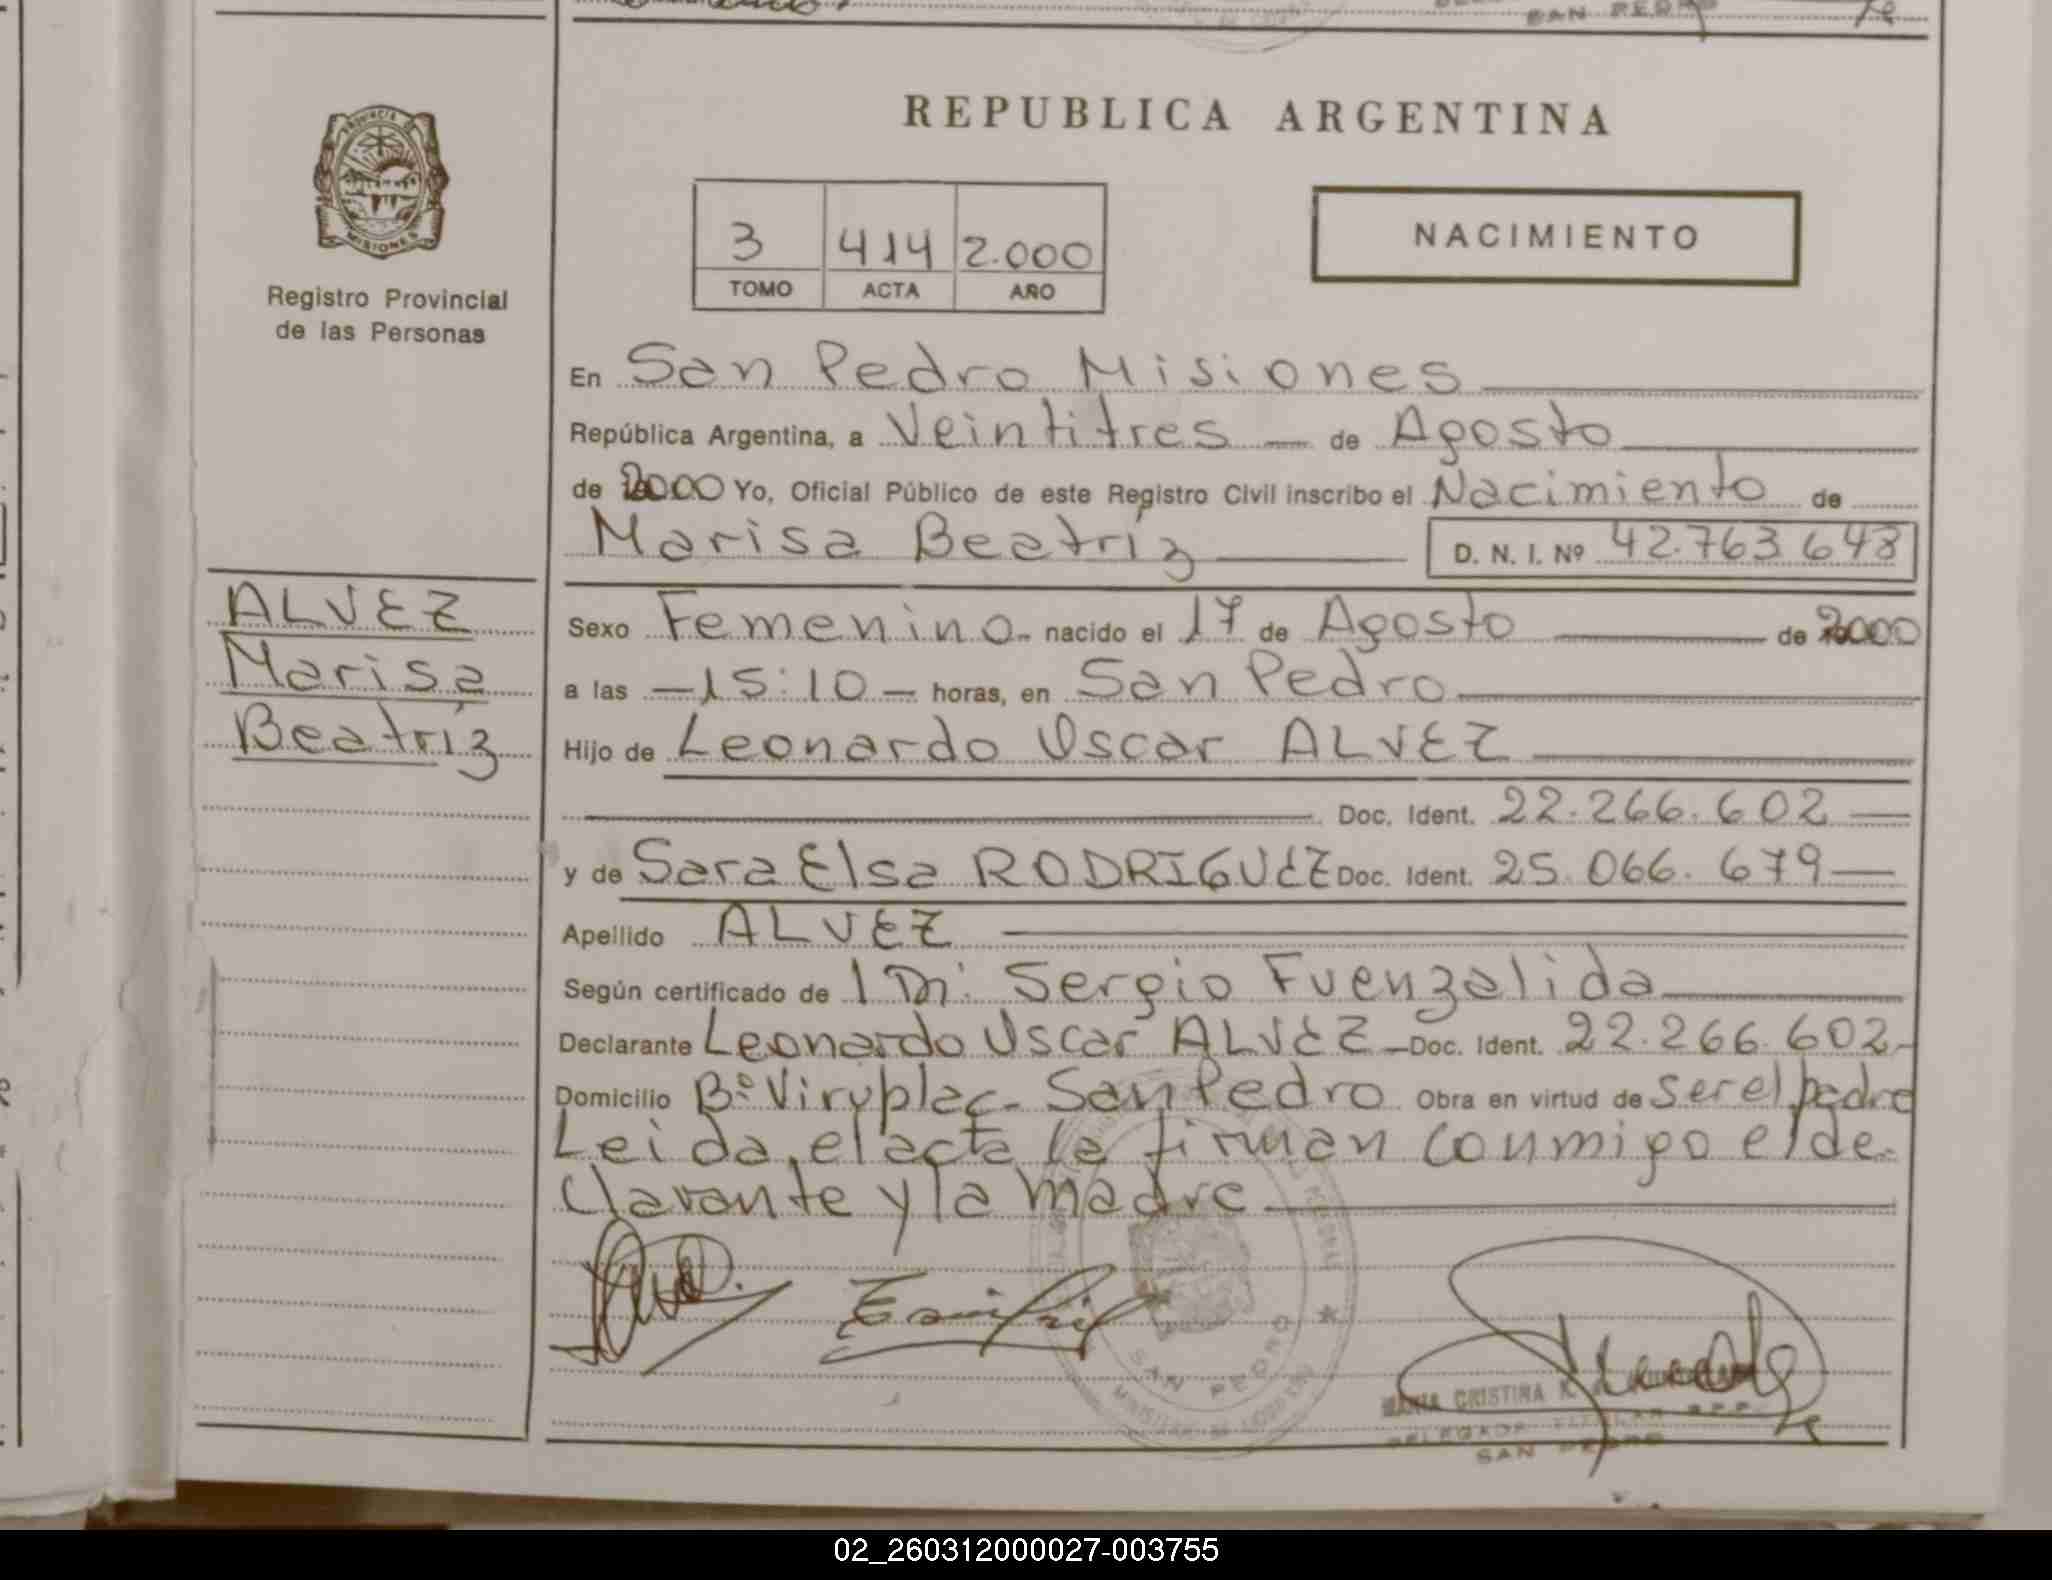 SAN PEDRO
REPUBLICA ARGENTINA
PROVINCIA DE
MISIONES
Registro Provincial
de las Personas
3 414 2.000
TOMO ACTA AÑO
NACIMIENTO
En San Pedro Misiones
República Argentina, a Veintitres de Agosto
de 2000 Yo, Oficial Público de este Registro Civil inscribo el Nacimiento de
Marisa Beatríz D. N. I. Nº 42.763.648
ALVEZ
Marisa
Beatríz
Sexo Femenino. nacido el 17 de Agosto de 2000
a las -15:10- horas, en San Pedro
Hijo de Leonardo Oscar ALVEZ
Doc. Ident. 22.266.602
y de Sara Elsa RODRIGUEZ Doc. Ident. 25.066.679
Apellido ALVEZ
Según certificado de Sergio Fuenzalida
Declarante Leonardo Oscar ALVEZ Doc. Ident. 22.266.602
Domicilio Bº Viruplac - San Pedro Obra en virtud de ser el padre
Leida el acta la firman conmigo el de-
clarante y la madre
SAN PEDRO
MARIA CRISTINA
DELEGADA TITULAR R.P.P.
SAN PEDRO
02_260312000027-003755